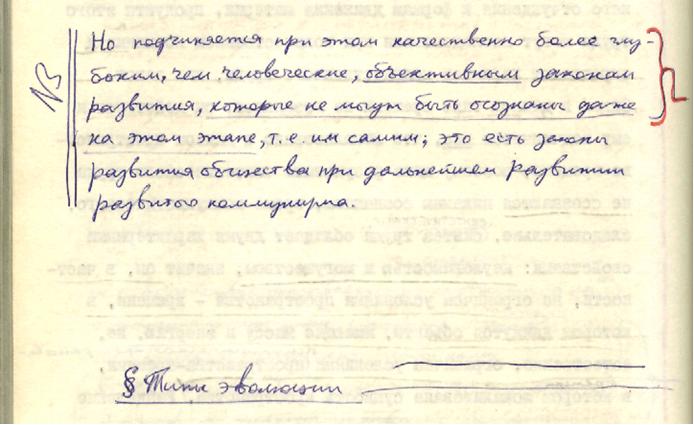 NB
Но подчиняется при этом качественно более глу-
боким, чем человеческие, объективным законам
развития, которые не могут быть осознаны даже
на этом этапе, т.е. им самим; это есть законы
развития общества при дальнейшем развитии
развитого коммунизма.
§ Типы эволюции